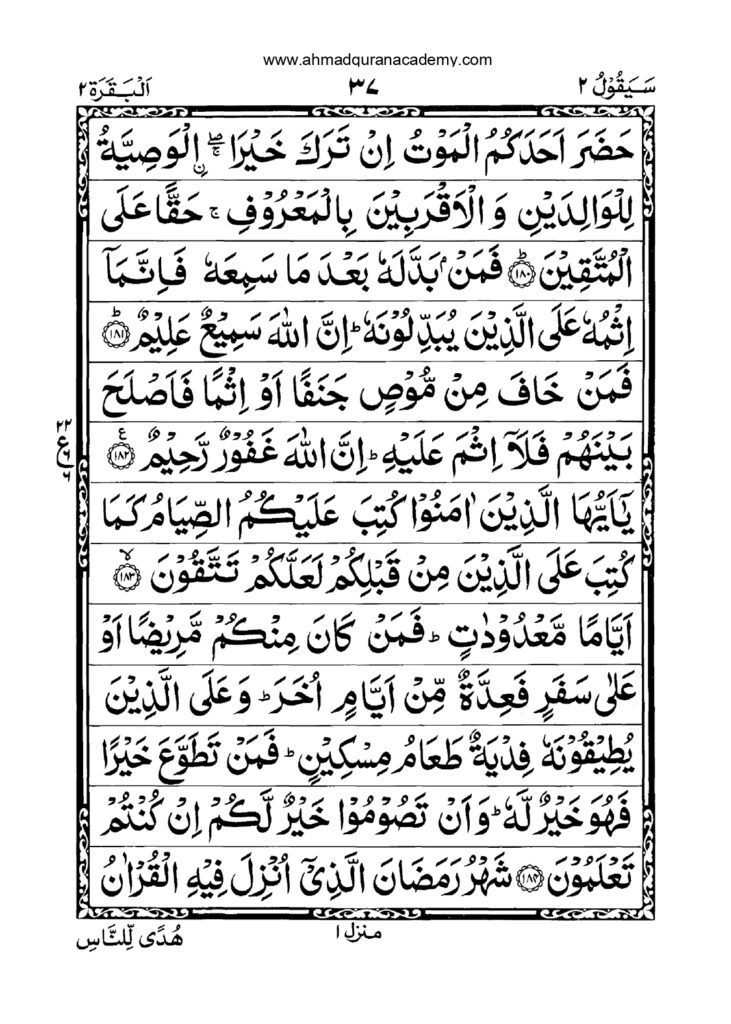 www.ahmadquranacademy.com
سَيَقُوْلُ ٢
٣٧
اَلْبَقَرَة ٢
حَضَرَ اَحَدَكُمُ الْمَوْتُ اِنْ تَرَكَ خَيْرَا ۖۚ اۨلْوَصِيَّةُ
لِلْوَالِدَيْنِ وَ الْاَقْرَبِيْنَ بِالْمَعْرُوْفِ ۚ حَقًّا عَلَى
الْمُتَّقِيْنَ ؕ ﴿١٨٠﴾ فَمَنْۢ بَدَّلَهٗ بَعْدَ مَا سَمِعَهٗ فَاِنَّمَاۤ
اِثْمُهٗ عَلَى الَّذِيْنَ يُبَدِّلُوْنَهٗ ؕ اِنَّ اللّٰهَ سَمِيْعٌ عَلِيْمٌ ؕ ﴿١٨١﴾
فَمَنْ خَافَ مِنْ مُّوْصٍ جَنَفًا اَوْ اِثْمًا فَاَصْلَحَ
بَيْنَهُمْ فَلَاۤ اِثْمَ عَلَيْهِ ؕ اِنَّ اللّٰهَ غَفُوْرٌ رَّحِيْمٌ ﴿١٨٢﴾ ع
٢٢
ع
٦
٦
يٰۤاَيُّهَا الَّذِيْنَ اٰمَنُوْا كُتِبَ عَلَيْكُمُ الصِّيَامُ كَمَا
كُتِبَ عَلَى الَّذِيْنَ مِنْ قَبْلِكُمْ لَعَلَّكُمْ تَتَّقُوْنَ ۙ ﴿١٨٣﴾
اَيَّامًا مَّعْدُوْدٰتٍ ؕ فَمَنْ كَانَ مِنْكُمْ مَّرِيْضًا اَوْ
عَلٰى سَفَرٍ فَعِدَّةٌ مِّنْ اَيَّامٍ اُخَرَ ؕ وَ عَلَى الَّذِيْنَ
يُطِيْقُوْنَهٗ فِدْيَةٌ طَعَامُ مِسْكِيْنٍ ؕ فَمَنْ تَطَوَّعَ خَيْرًا
فَهُوَ خَيْرٌ لَّهٗ ؕ وَ اَنْ تَصُوْمُوْا خَيْرٌ لَّكُمْ اِنْ كُنْتُمْ
تَعْلَمُوْنَ ﴿١٨٤﴾ شَهْرُ رَمَضَانَ الَّذِيْۤ اُنْزِلَ فِيْهِ الْقُرْاٰنُ
منزل ١
هُدًى لِّلنَّاسِ